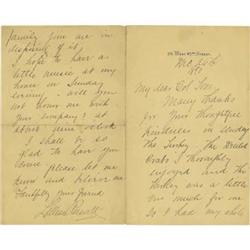 Dec 26th
My dear Col. Tom
Many thanks
for your thoughtful
kindness in sending
the Turkey. The
Crabs I thoroughly
enjoyed and the
Turkey was a little
too much for me
so I had my whole
family here and in
disposing of it
I hope to have a
little music at my
house on Sunday
evening. Will you
not honor me with
your company? at
about nine o'clock
I shall be so
glad to have you
come please let me
know and believe me
Faithfully your friend